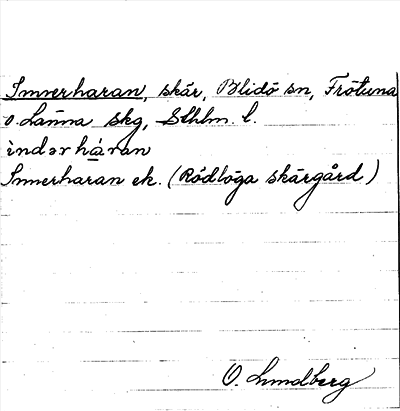 Innerharan, skär, Blidö sn, Frötuna
o. Länna skg, Sthlm. l.
ìndərháran
Innerharan ek. (Rödlöga skärgård)
O. Lundberg